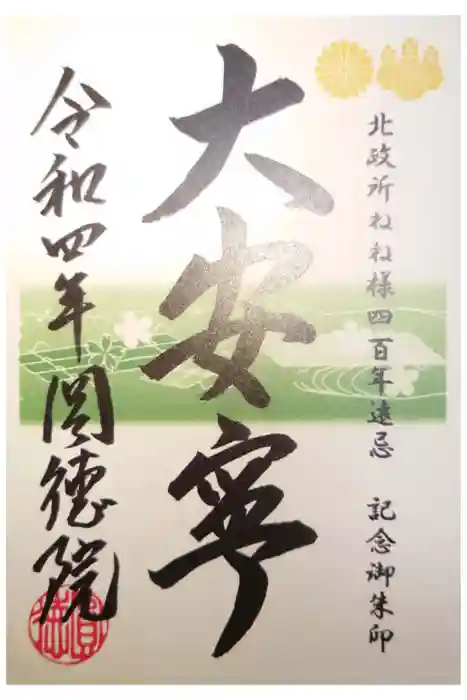 北政所ねね様四百年遠忌 記念御朱印
大安寧
令和四年 圓徳院
圓徳